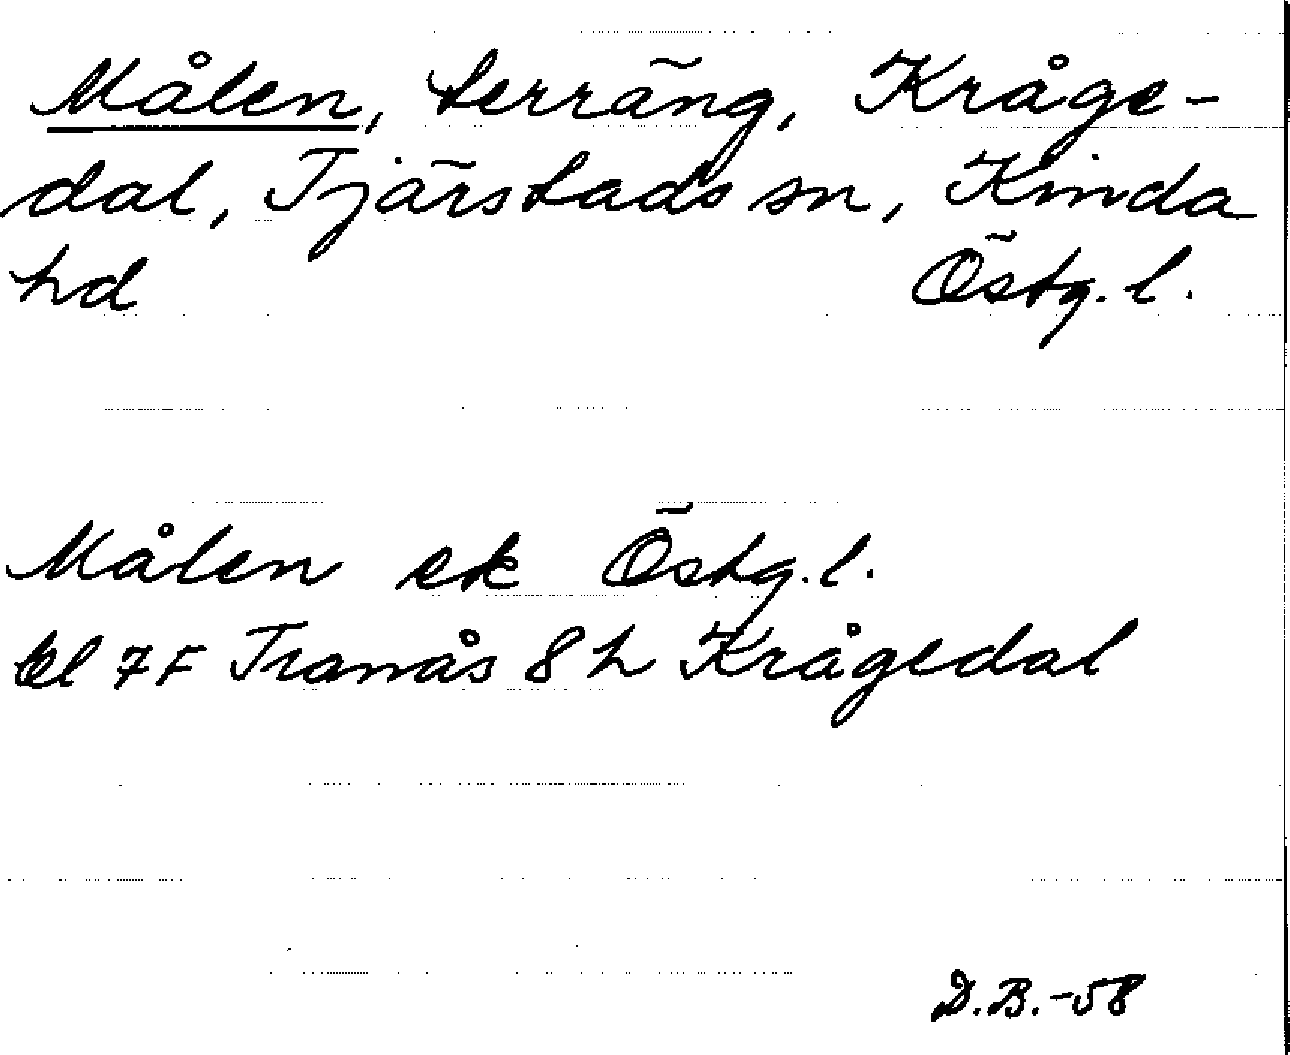 Målen, terräng, Kråge-
dal, Tjärstads sn, Kinda
hd Östg. l.
Målen ek Östg. l.
bl 7F Tranås 8h Krågedal
D.B.-58